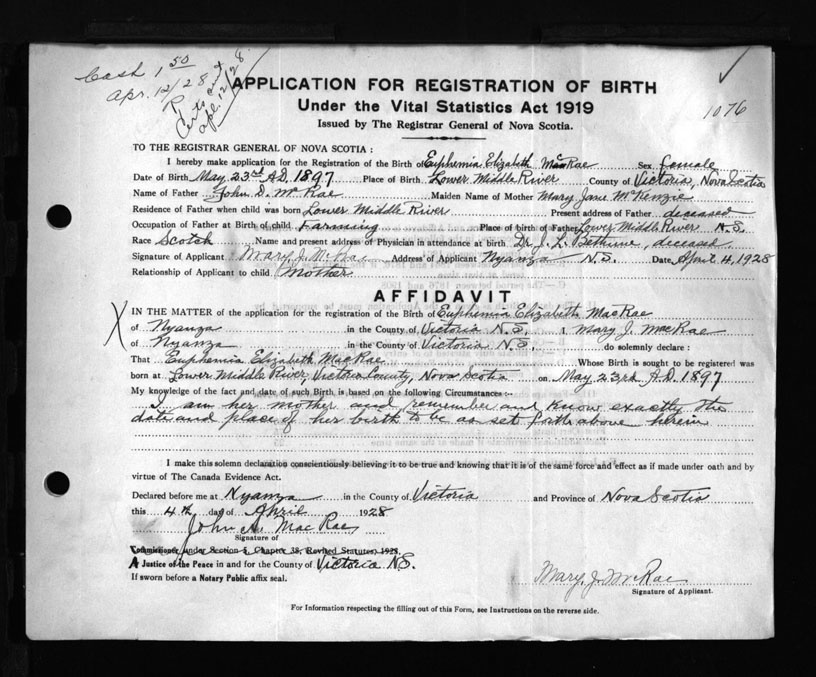 Cash 1 50
Apr. 12/28
Certs sent
Apl. 12/28
1076
APPLICATION FOR REGISTRATION OF BIRTH
Under the Vital Statistics Act 1919
Issued by The Registrar General of Nova Scotia.
TO THE REGISTRAR GENERAL OF NOVA SCOTIA :
I hereby make application for the Registration of the Birth of Euphemia Elizabeth MacRae Sex female
Date of Birth May 23rd A.D. 1897 Place of Birth Lower Middle River County of Victoria, Nova Scotia
Name of Father John D. McRae Maiden Name of Mother Mary Jane McKenzie
Residence of Father when child was born Lower Middle River Present address of Father deceased
Occupation of Father at Birth of child Farming Place of birth of Father Lower Middle River N.S.
Race Scotch Name and present address of Physician in attendance at birth Dr. J. L. Bethune, deceased
Signature of Applicant Mary J. McRae Address of Applicant Nyanza N.S. Date April 4, 1928
Relationship of Applicant to child Mother
AFFIDAVIT
IN THE MATTER of the application for the registration of the Birth of Euphemia Elizabeth MacRae
of Nyanza in the County of Victoria N.S. I Mary J. MacRae
of Nyanza in the County of Victoria N.S. do solemnly declare :
That Euphemia Elizabeth MacRae Whose Birth is sought to be registered was
born at Lower Middle River, Victoria County, Nova Scotia on May 23rd A.D. 1897
My knowledge of the fact and date of such Birth is based on the following Circumstances :-
I am her mother and remember and know exactly the
date and place of her birth to be as set forth above herein
I make this solemn declaration conscientiously believing it to be true and knowing that it is of the same force and effect as if made under oath and by
virtue of The Canada Evidence Act.
Declared before me at Nyanza in the County of Victoria and Province of Nova Scotia
this 4th day of April 1928
John A. MacRae
Signature of
Commissioner under Section 5, Chapter 38, Revised Statutes, 1923.
A Justice of the Peace in and for the County of Victoria N.S.
If sworn before a Notary Public affix seal.
Mary. J. McRae
Signature of Applicant.
For Information respecting the filling out of this Form, see Instructions on the reverse side.